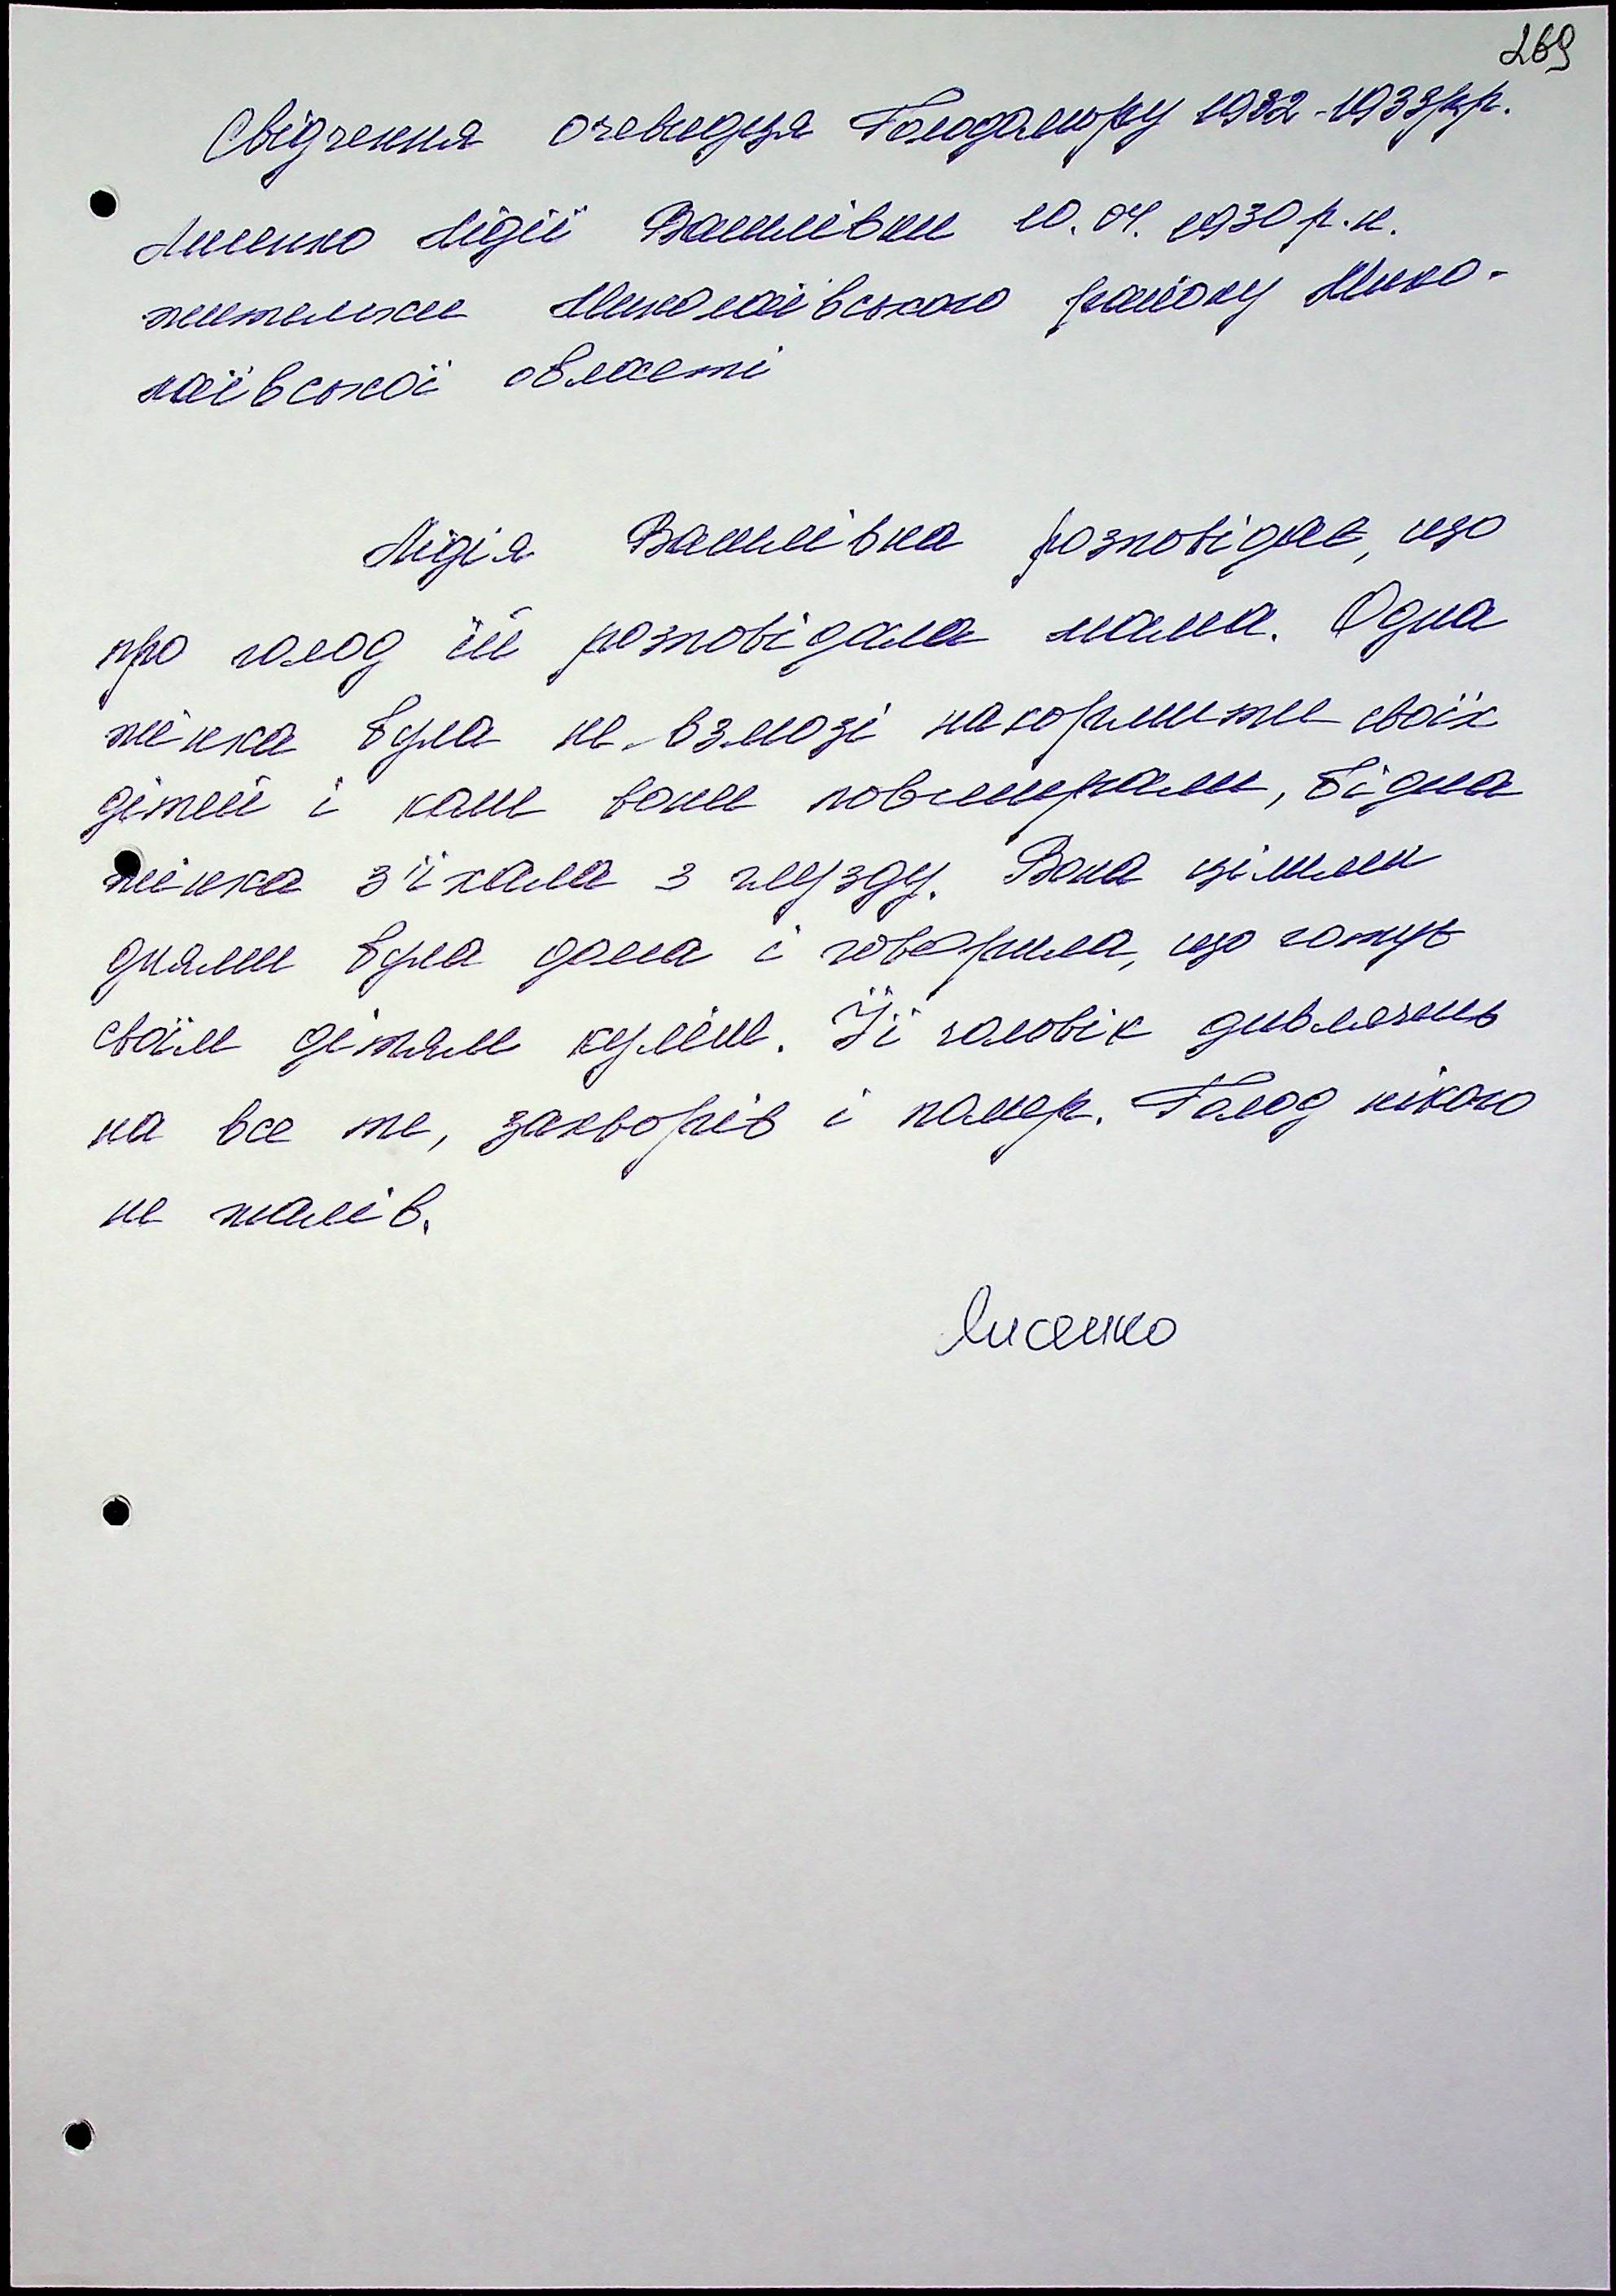 269
Свідчення очевидця Голодомору 1932-1933рр.
Лисенко Лідії Василівни 10.04.1930 р.н.
жительки Миколаївського району Мико-
лаївської області
Лідія Василівна розповідає, що
про голод їй розповідала мама. Одна
жінка була не взмозі накормити своїх
дітей і коли вони повмирали, бідна
жінка з'їхала з глузду. Вона цілими
днями була дома і говорила, що готує
своїм дітям куліш. Її чоловік дивлячись
на все те, захворів і помер. Голод нікого
не жалів.
Лисенко